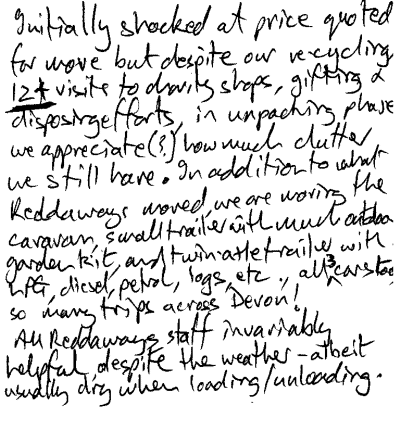 Initially shocked at price quoted
for move but despite our recycling,
12+ visits to charity shops, gifting &
disposing efforts, in unpacking phase
we appreciate (?) how much clutter
we still have. In addition to what
Reddaways moved, we are moving the
caravan, small trailer with much outdoor
garden kit, and twin axle trailer with
LPG, diesel, petrol, logs, etc., all 3 cars too,
so many trips across Devon!
All Reddaways staff invariably
helpful, despite the weather - albeit
usually dry when loading/unloading.